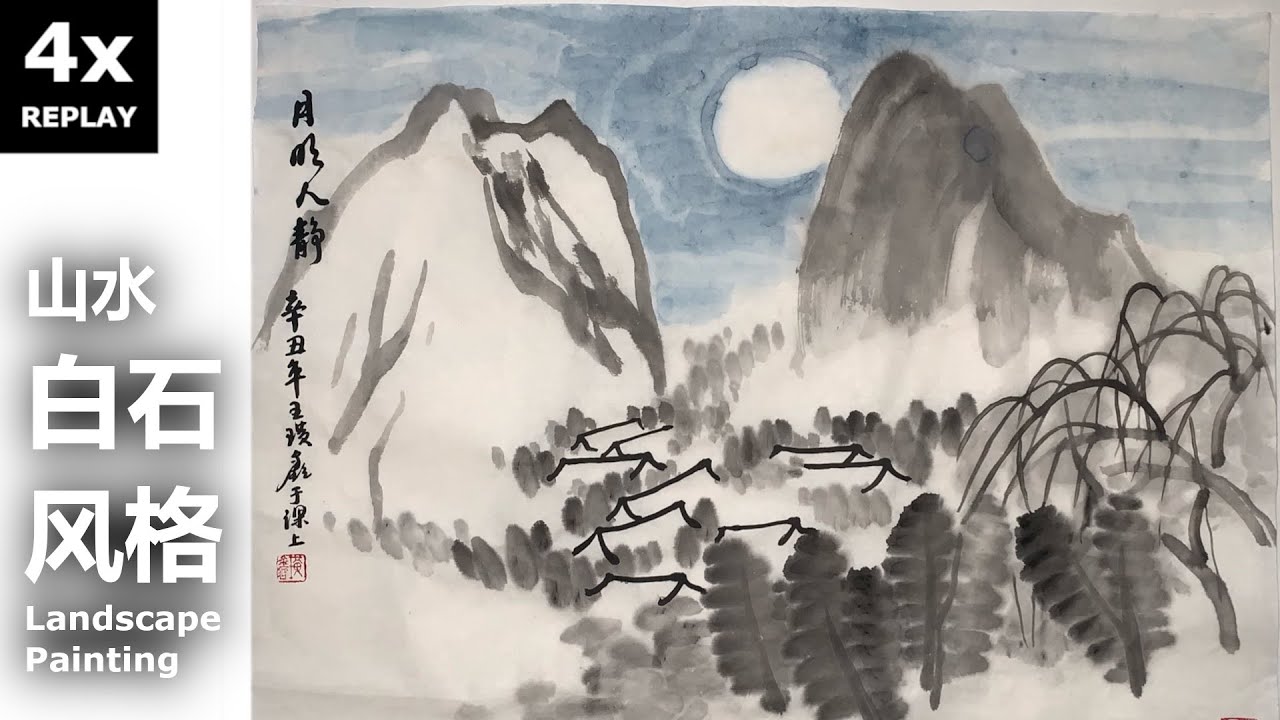 4x
REPLAY
山水
白石
风格
Landscape
Painting
月明人静
辛丑年王璜鑫于课上